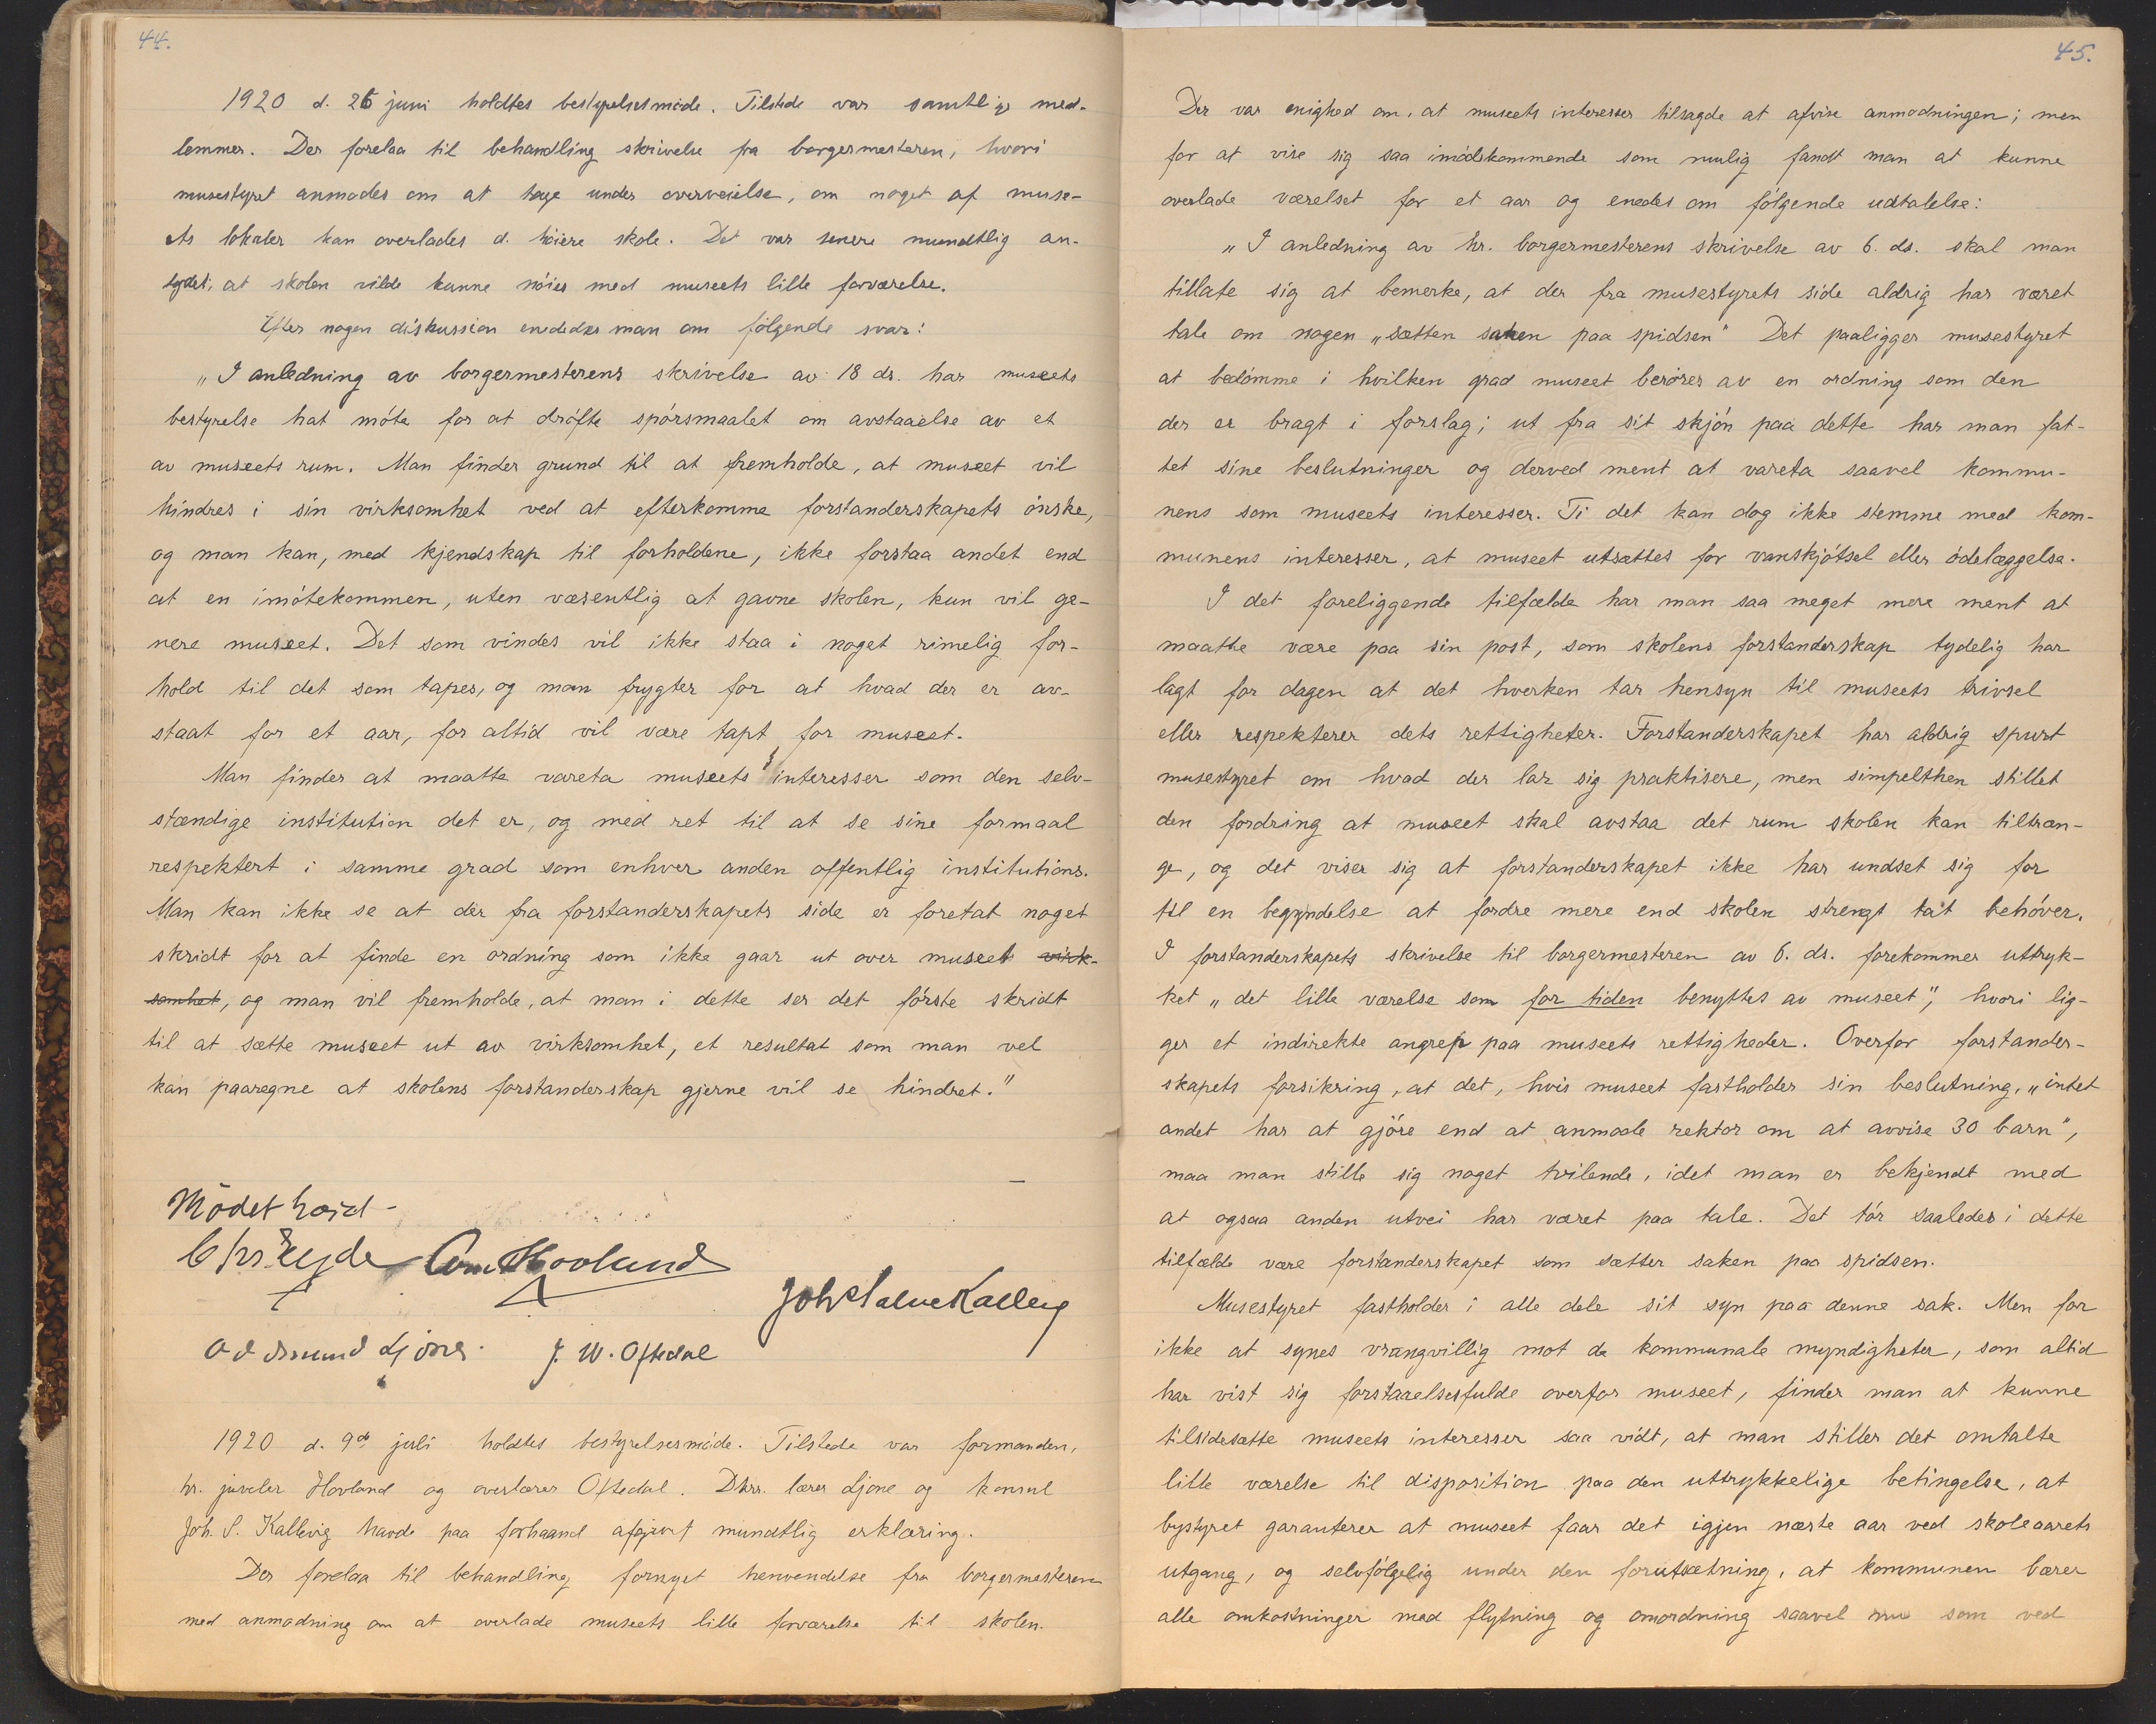 44.
1920 d. 26 juni holdtes bestyrelsesmöde. Tilstede var samtlige med-
lemmer. Der forelaa til behandling skrivelse fra borgermesteren, hvori
musestyret anmodes om at tage under overveielse, om noget af muse-
ets lokaler kan overlades d. höiere skole. Det var senere mundtlig an-
tydet, at skolen vilde kunne nöies med museets lille forværelse.
Efter nogen diskussion enededes man om fölgende svar:
„I anledning av borgermesterens skrivelse av 18 ds. har museets
bestyrelse hat möte for at dröfte spörsmaalet om avstaaelse av et
av museets rum. Man finder grund til at fremholde, at museet vil
hindres i sin virksomhet ved at efterkomme forstanderskapets önske,
og man kan, med kjendskap til forholdene, ikke forstaa andet end
at en imötekommen, uten væsentlig at gavne skolen, kun vil ge-
nere museet. Det som vindes vil ikke staa i noget rimelig for-
hold til det som tapes, og man frygter for at hvad der er av-
staat for et aar, for altid vil være tapt for museet.
Man finder at maatte vareta museets interesser som den selv-
stændige institution det er, og med ret til at se sine formaal
respektert i samme grad som enhver anden offentlig institutions.
Man kan ikke se at der fra forstanderskapets side er foretat noget
skridt for at finde en ordning som ikke gaar ut over museet virk-
somhet, og man vil fremholde, at man i dette ser det förste skridt
til at sætte museet ut av virksomhet, et resultat som man vel
kan paaregne at skolens forstanderskap gjerne vil se hindret."
Mödet hævd -
Chr. Eyde Com Hovland
Joh. Salve Kallevig
Oddmund Ljone. J. W. Oftedal
1920 d. 9de juli holdtes bestyrelsesmöde. Tilstede var formanden,
hr. juveler Hovland og overlærer Oftedal. Dhrr. lærer Ljone og konsul
Joh. S. Kallevig havde paa forhaand afgivet mundtlig erklæring.
Der forelaa til behandling fornyet henvendelse fra borgermesteren
med anmodning om at overlade museets lille forværelse til skolen.
45.
Der var enighed om, at museets interesser tilsagde at afvise anmodningen; men
for at vise sig saa imödekommende som mulig fandt man at kunne
overlade værelset for et aar og enedes om fölgende udtalelse:
„I anledning av hr. borgermesterens skrivelse av 6. ds. skal man
tillate sig at bemerke, at der fra musestyrets side aldrig har været
tale om nogen „sætten saken paa spidsen" Det paaligger musestyret
at bedömme i hvilken grad museet berörer av en ordning som den
der er bragt i forslag; ut fra sit skjön paa dette har man fat-
tet sine beslutninger og derved ment at vareta saavel kommu-
nens som museets interesser. Ti det kan dog ikke stemme med kom-
munens interesser, at museet utsættes for vanskjötsel eller ödelæggelse.
I det foreliggende tilfælde har man saa meget mere ment at
maatte være paa sin post, som skolens forstanderskap tydelig har
lagt for dagen at det hverken tar hensyn til museets trivsel
eller respekterer dets rettigheter. Forstanderskapet har aldrig spurt
musestyret om hvad der lar sig praktisere, men simpelthen stillet
den fordring at museet skal avstaa det rum skolen kan tiltræn-
ge, og det viser sig at forstanderskapet ikke har undset sig for
til en begyndelse at fordre mere end skolen strengt tat behöver.
I forstanderskapets skrivelse til borgermesteren av 6. ds. forekommer uttryk-
ket „det lille værelse som for tiden benyttes av museet", hvori lig-
ger et indirekte angrep paa museets rettigheder. Overfor forstander-
skapets forsikring, at det, hvis museet fastholder sin beslutning, „intet
andet har at gjöre end at anmode rektor om at avvise 30 barn",
maa man stille sig noget tvilende, idet man er bekjendt med
at ogsaa anden utvei har været paa tale. Det tör saaledes i dette
tilfælde være forstanderskapet som sætter saken paa spidsen.
Musestyret fastholder i alle dele sit syn paa denne sak. Men for
ikke at synes vrangvillig mot de kommunale myndigheter, som altid
har vist sig forstaaelsesfulde overfor museet, finder man at kunne
tilsidesætte museets interesser saa vidt, at man stiller det omtalte
lille værelse til disposition paa den uttrykkelige betingelse, at
bystyret garanterer at museet faar det igjen næste aar ved skoleaarets
utgang, og selvfölgelig under den forutsætning, at kommunen bærer
alle omkostninger med flytning og omordning saavel nu som ved